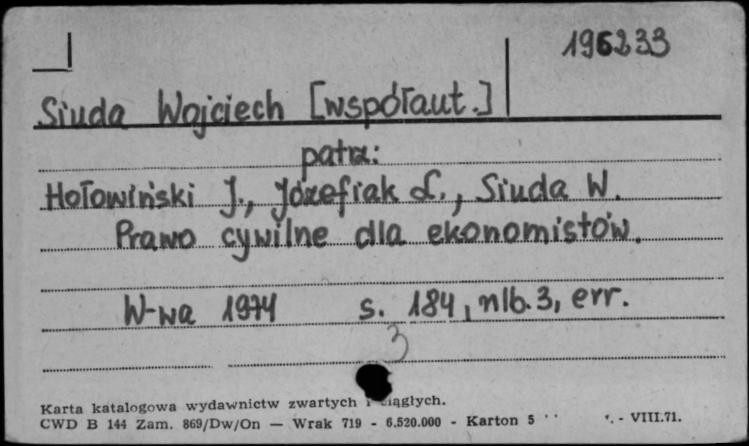 196233
Siuda Wojciech [współaut.]
patrz:
Hołowiński J., Józefiak L., Siuda W.
Prawo cywilne dla ekonomistów.
W-wa 1974 s. 184, nlb. 3, err.
3
Karta katalogowa wydawnictw zwartych i ciągłych.
CWD B 144 Zam. 869/Dw/On — Wrak 719 - 6.520.000 - Karton 5 - VIII.71.